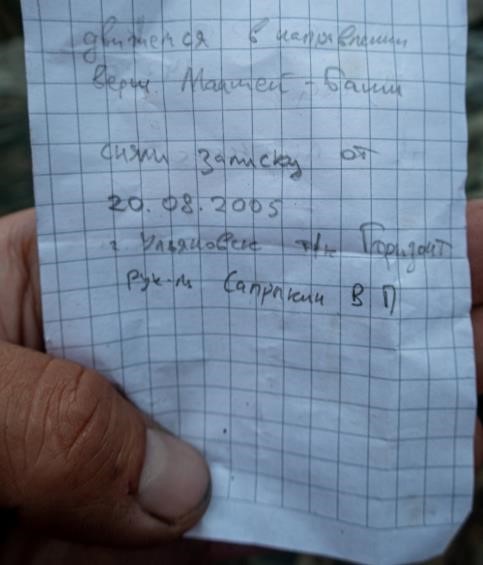 движемся в направлении
верш. Баши
сняли записку от
20.08.2005
г. Ульяновск т/к Горизонт
рук-ль В П